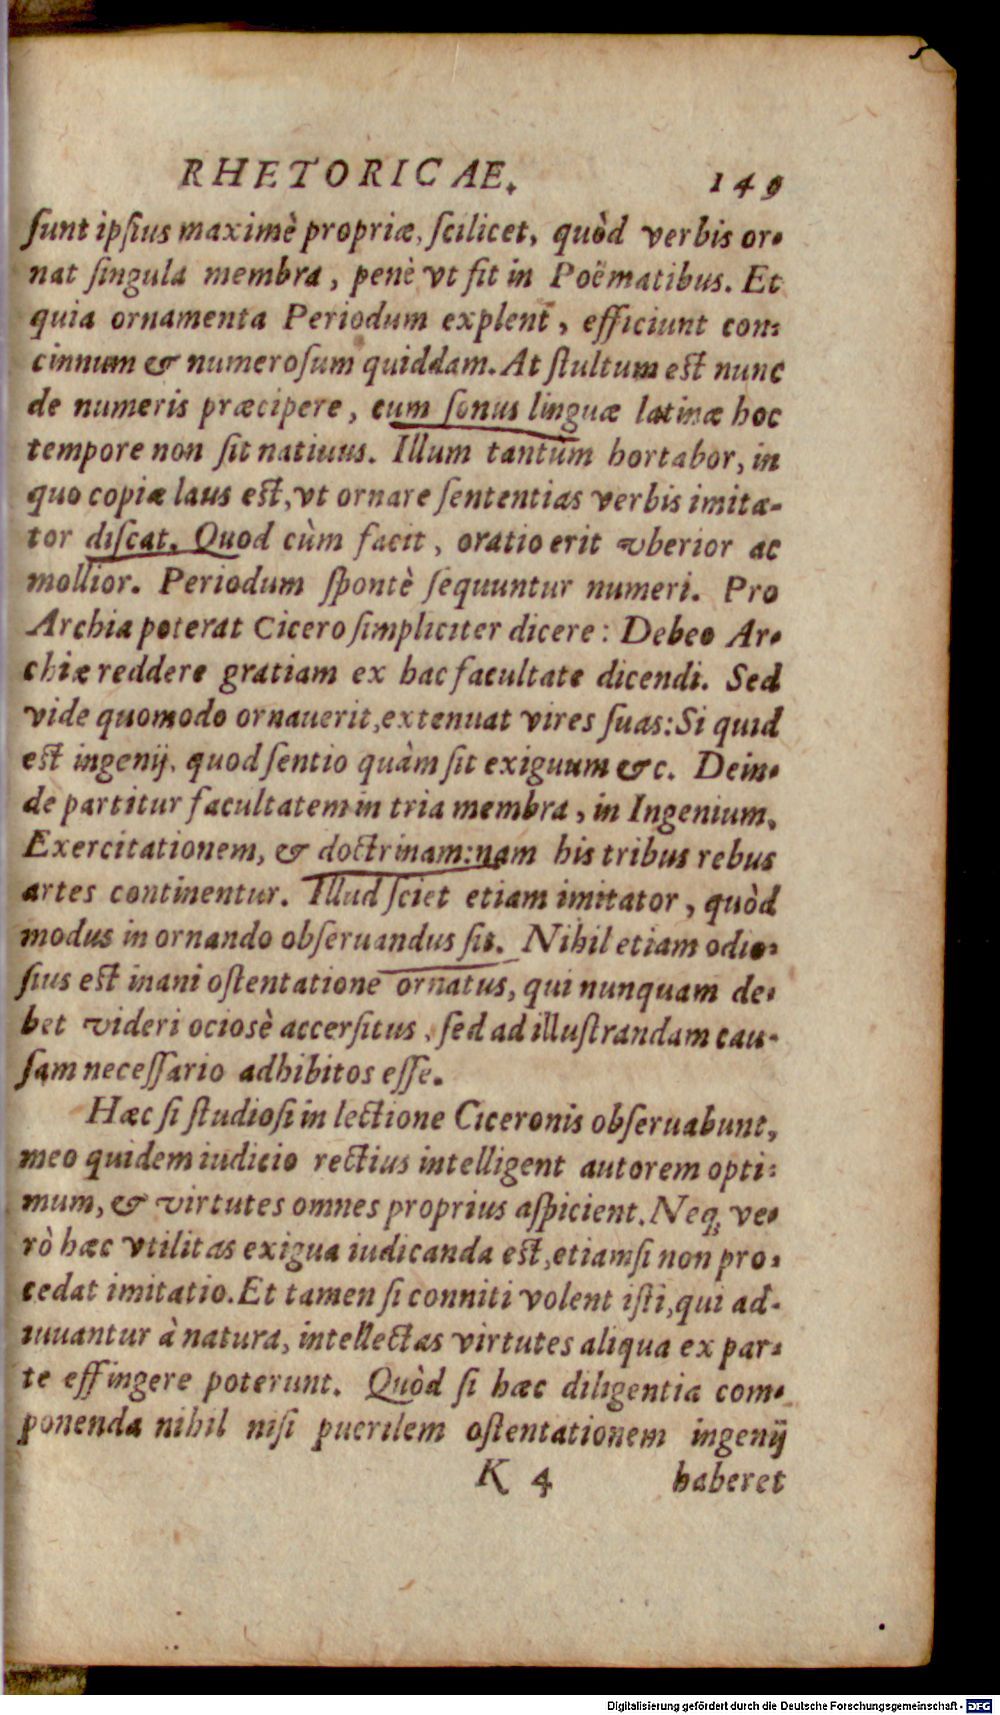 RHETORICAE. 149
ſunt ipſius maximè propriæ, ſcilicet, quòd verbis or-
nat ſingula membra, penè vt fit in Poëmatibus. Et
quia ornamenta Periodum explent, efficiunt con-
cinnum & numeroſum quiddam. At ſtultum est nunc
de numeris præcipere, cum ſonus linguæ latinæ hoc
tempore non ſit natiuus. Illum tantùm hortabor, in
quo copiæ laus eſt, vt ornare ſententias verbis imita-
tor diſcat. Quod cùm facit, oratio erit vberior ac
mollior. Periodum ſpontè ſequuntur numeri. Pro
Archia poterat Cicero ſimpliciter dicere: Debeo Ar-
chiæ reddere gratiam ex hac facultate dicendi. Sed
vide quomodo ornauerit, extenuat vires ſuas: Si quid
eſt ingenij, quod ſentio quàm ſit exiguum &c. Dein-
de partitur facultatem in tria membra, in Ingenium,
Exercitationem, & doctrinam: nam his tribus rebus
artes continentur. Illud ſciet etiam imitator, quòd
modus in ornando obſeruandus ſit. Nihil etiam odio-
ſius eſt inani oſtentatione ornatus, qui nunquam de-
bet videri ociosè accerſitus, ſed ad illuſtrandam cau-
ſam neceſſario adhibitos eſſe.
Hæc ſi ſtudioſi in lectione Ciceronis obſeruabunt,
meo quidem iudicio rectius intelligent autorem opti-
mum, & virtutes omnes proprius aſpicient. Neq; ve-
rò hæc vtilitas exigua iudicanda eſt, etiamſi non pro-
cedat imitatio. Et tamen ſi conniti volent iſti, qui ad-
iuuantur à natura, intellectas virtutes aliqua ex par-
te effingere poterunt. Quòd ſi hæc diligentia com-
ponenda nihil niſi puerilem oſtentationem ingenij
K 4 haberet
Digitalisierung gefördert durch die Deutsche Forschungsgemeinschaft - DFG